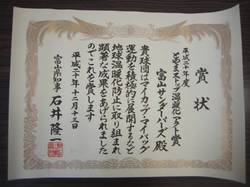 賞状
平成二十年度
とやまストップ温暖化アクト賞
富山サンダーバーズ殿
貴球団はマイカップ・マイバッグ
運動を積極的に展開するなど
地球温暖化防止に取り組まれ
顕著な成果をあげられました
のでこれを賞します
平成二十年十二月十三日
富山県知事 石井隆一